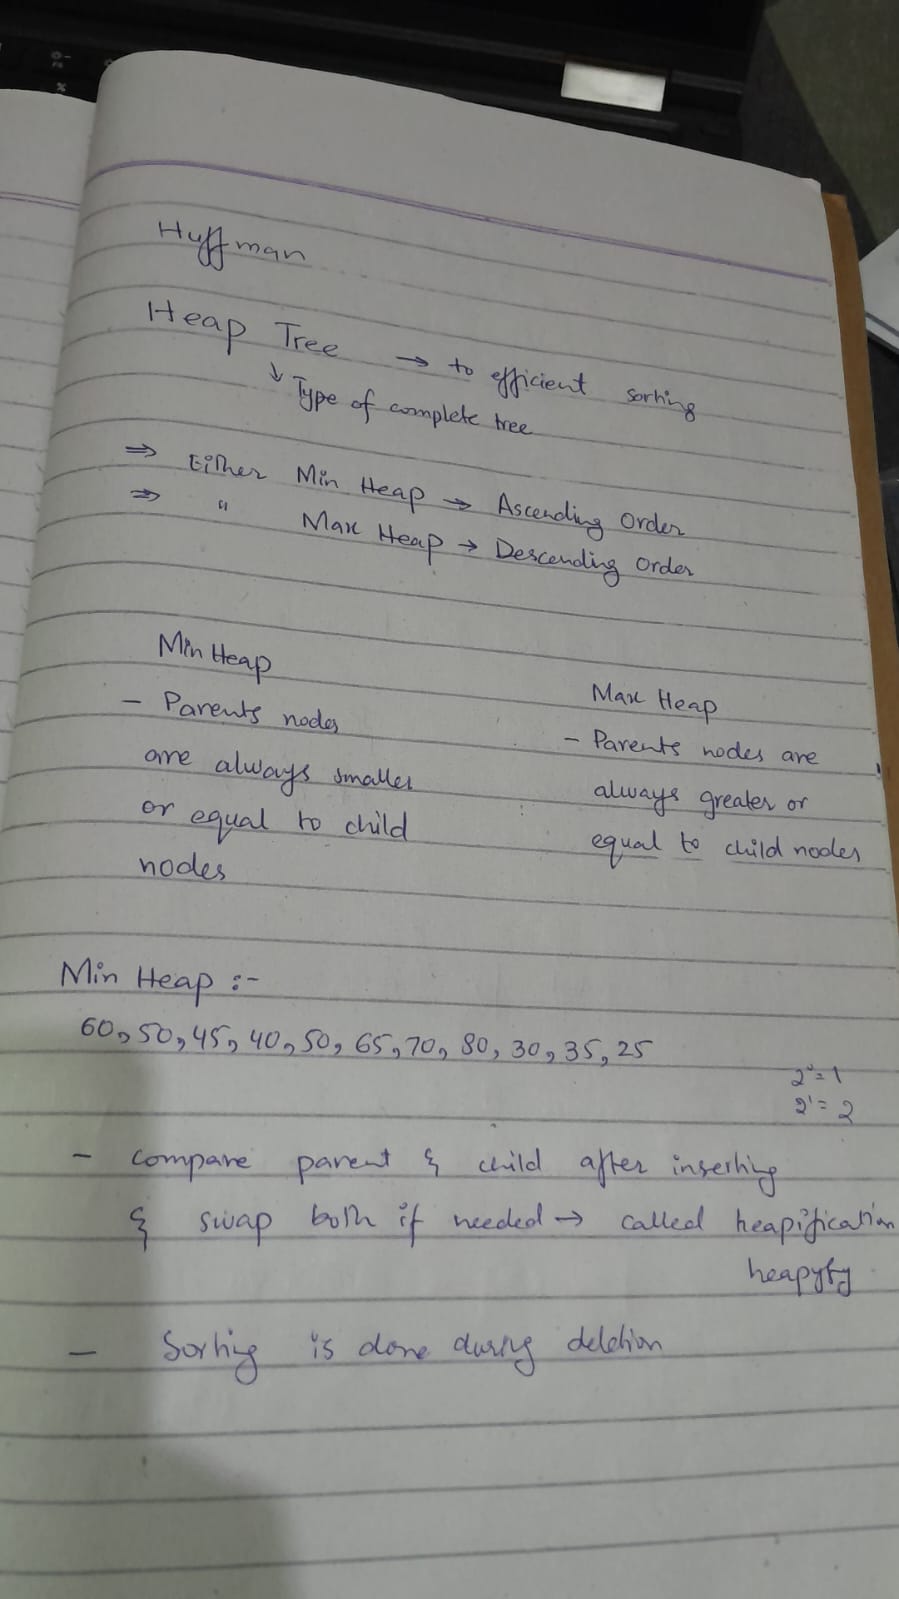 Huffman
Heap Tree → to efficient sorting
↓ Type of complete tree
⇒ Either Min Heap → Ascending Order
⇒ " Max Heap → Descending Order
Min Heap
- Parents nodes
are always smaller
or equal to child
nodes
Max Heap
- Parents nodes are
always greater or
equal to child nodes
Min Heap :-
60, 50, 45, 40, 50, 65, 70, 80, 30, 35, 25
2⁰ = 1
2¹ = 2
- compare parent & child after inserting
& swap both if needed → called heapification
heapyfy
- Sorting is done during deletion